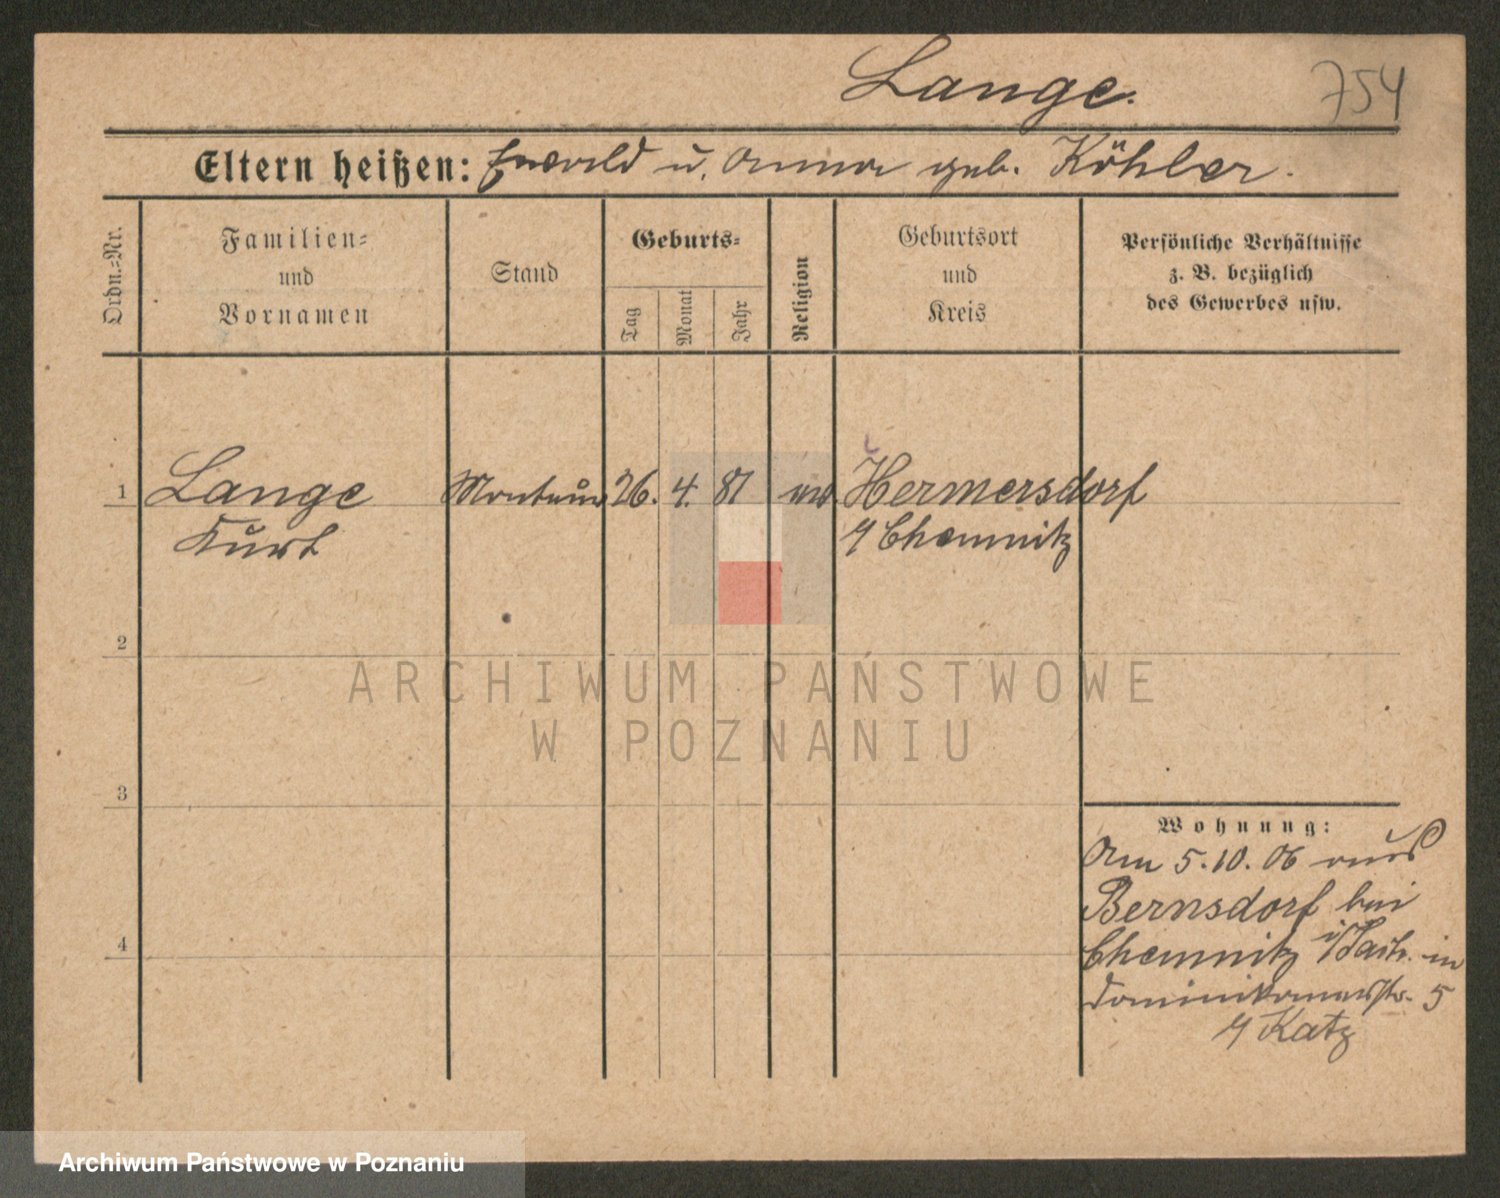 Lange.
754
Eltern heißen: Ewald u. Anna geb. Köhler.
Ordn.-Nr.
Familien-
und
Vornamen
Stand
Geburts-
Tag
Monat
Jahr
Religion
Geburtsort
und
Kreis
Persönliche Verhältnisse
z. B. bezüglich
des Gewerbes usw.
1 Lange Monteur 26. 4. 81 Hermersdorf
Kurt Chemnitz
2
ARCHIWUM PAŃSTWOWE
W POZNANIU
3
Wohnung:
Am 5.10.06 aus
Bernsdorf bei
4
Chemnitz i/Sachs. in
Dominikanerstr. 5
Katz
Archiwum Państwowe w Poznaniu